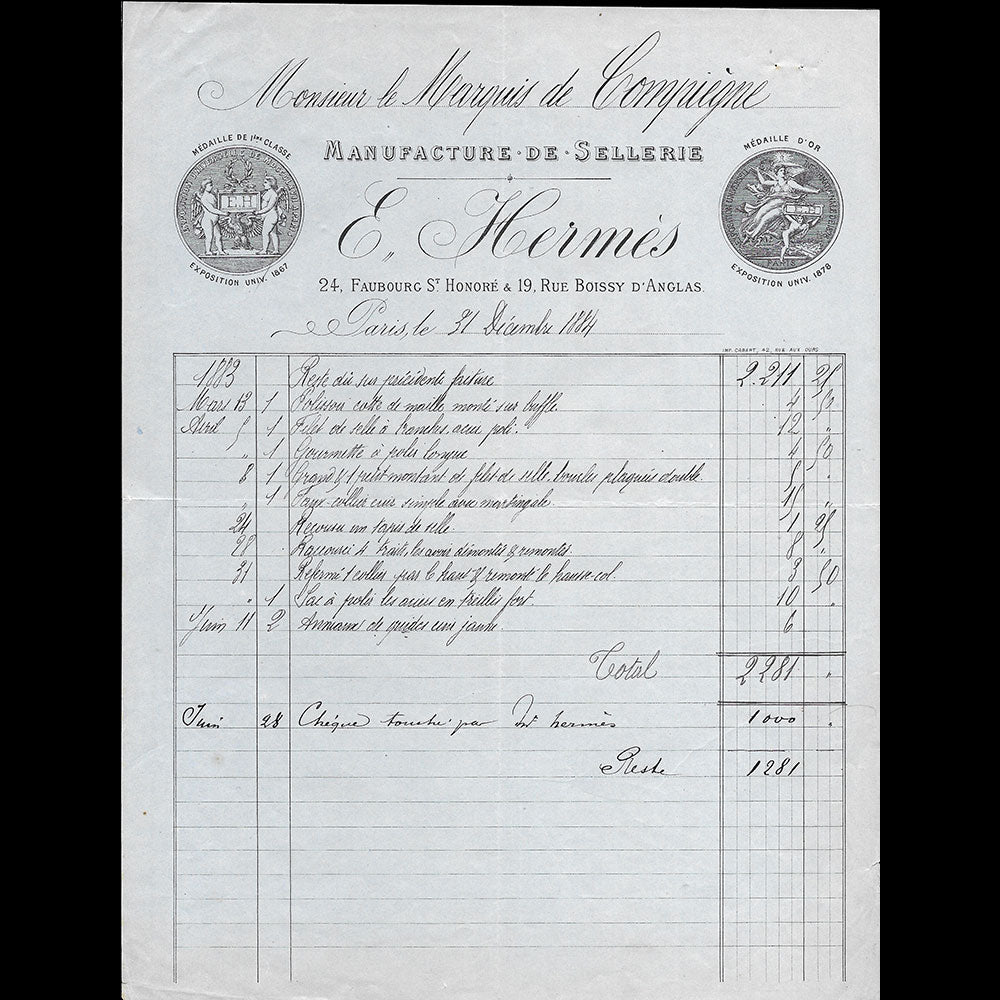 Monsieur le Marquis de Compiègne
MÉDAILLE DE 1ère CLASSE
E.H
EXPOSITION UNIV. 1867
MANUFACTURE·DE·SELLERIE
MÉDAILLE D'OR
E.H
PARIS
EXPOSITION UNIV. 1878
E. Hermès
24, FAUBOURG ST HONORÉ & 19, RUE BOISSY D'ANGLAS.
Paris, le 31 Décembre 1884
IMP. CABERT, 42, RUE AUX OURS
1883 Reste dû sur précédente facture 2.211 25
Mars 13 1 Polissoir cotte de maille monté sur buffle. 4 50
Avril 5 1 Filet de selle à branches, acier poli. 12 "
" 1 Gourmette à polir longue 4 50
8 1 Grand & 1 petit montant de filet de selle, boucles plaquées double. 5 "
" 1 Faux-collier cuir simple avec martingale. 15 "
24 Recousu un tapis de selle. 1 25
28 Raccourci 4 traits, les avoir démontés & remontés. 8 "
31 Refermé 1 collier par le haut & remonté le hausse-col. 3 50
" 1 Sac à polir les aciers en treillis fort. 10 "
Juin 11 2 de guides cuir jaune 6
Total 2281 "
Juin 28 Chèque touché par Mr hermès 1000 "
Reste 1281